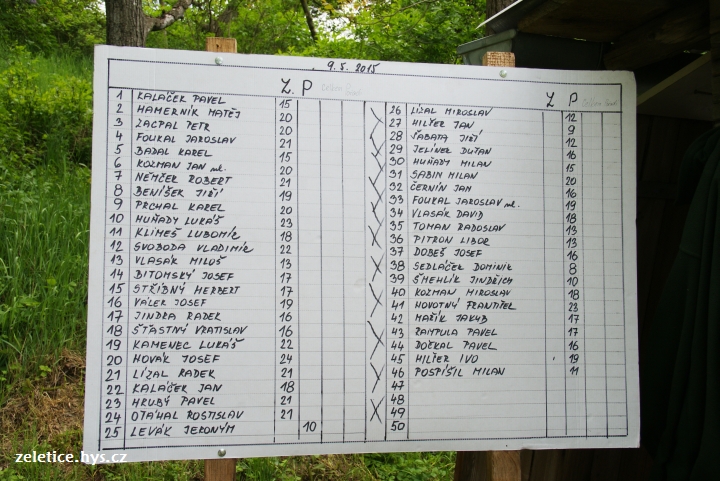 9. 5. 2015
Z. P
1 KALÁČEK PAVEL 15
2 HAMERNÍK MATĚJ 20
3 ZACPAL PETR 20
4 FOUKAL JAROSLAV 21
5 BADAL KAREL 15
6 KOZMAN JAN ml. 20
7 NĚMČEK ROBERT 21
8 BENÍŠEK JIŘÍ 19
9 PRCHAL KAREL 20
10 HUŇADY LUKÁŠ 23
11 KLIMEŠ LUBOMÍR 18
12 SVOBODA VLADIMÍR 22
13 VLASÁK MILOŠ 13
14 BITOMSKÝ JOSEF 17
15 STŘÍBNÝ HERBERT 17
16 VÁLEK JOSEF 19
17 JINDRA RADEK 16
18 ŠŤASTNÝ VRATISLAV 16
19 KAMENEC LUKÁŠ 22
20 NOVÁK JOSEF 24
21 LÍZAL RADEK 21
22 KALÁČEK JAN 18
23 HRUBÝ PAVEL 21
24 OTÁHAL ROSTISLAV 21
25 LEVÁK JERONÝM 10
Z P
26 LÍZAL MIROSLAV 12
27 HILŤER JAN 9
28 ŠABATA JIŘÍ 12
29 JELÍNEK DUŠAN 16
30 HUŇADY MILAN 15
31 SABIN MILAN 20
32 ČERNÍN JAN 16
33 FOUKAL JAROSLAV ml. 19
34 VLASÁK DAVID 18
35 TOMAN RADOSLAV 13
36 PITRON LIBOR 13
37 DOBEŠ JOSEF 16
38 SEDLÁČEK DOMINIK 8
39 ŠMEHLÍK JINDŘICH 10
40 KOZMAN MIROSLAV 18
41 NOVOTNÝ FRANTIŠEK 23
42 MAŘÍK JAKUB 17
43 RAMPULA PAVEL 17
44 DOČKAL PAVEL 16
45 HILŤER IVO 19
46 POSPÍŠIL MILAN 11
47
48
49
50
zeletice.hys.cz